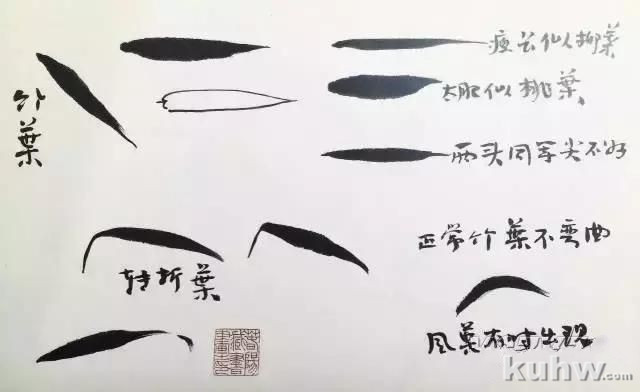 竹葉
瘦长似柳葉
太肥似桃葉
两头同等尖不好
转折葉
正常竹葉不弯曲
风葉有时出现
kuhw.com